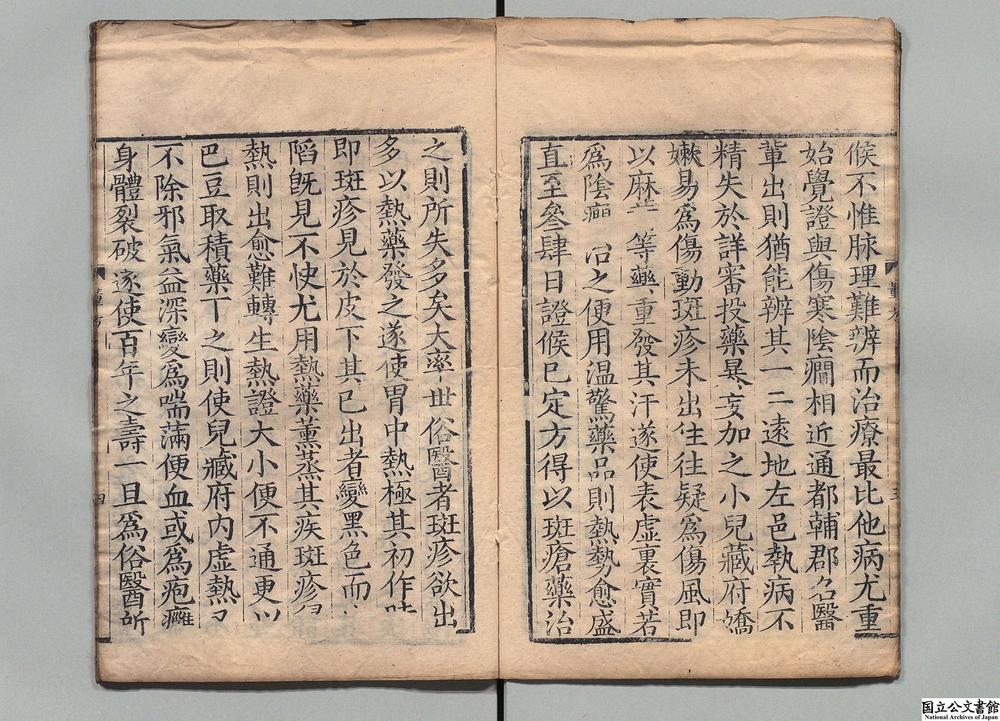 候不惟脉理難辨而治療最比他病尤重
始覺證與傷寒陰癇相近通都輔郡名醫
軰出則猶能辨其一二遠地左邑執病不
精失於詳審投藥暴妄加之小兒藏府嬌
嫰易爲傷動斑疹未出往往疑爲傷風即
以麻 等藥重發其汗遂使表虛裏實若
爲陰癇治之便用温驚藥品則熱勢愈盛
直至叄肆日證候巳定方得以斑瘡藥治
之則所失多矣大率世俗醫者斑疹欲出
多以熱藥發之遂使胃中熱極其初作時
即斑疹見於皮下其巳出者變黑色而
陷旣見不快尤用熱藥薫蒸其疾斑疹
熱則出愈難轉生熱證大小便不通更以
巴豆取積藥下之則使兒藏府内虛熱又
不除邪氣益深變爲喘滿便血或爲疱癰
身體裂破遂使百年之壽一旦爲俗醫所
四
国立公文書館
National Archives of Japan